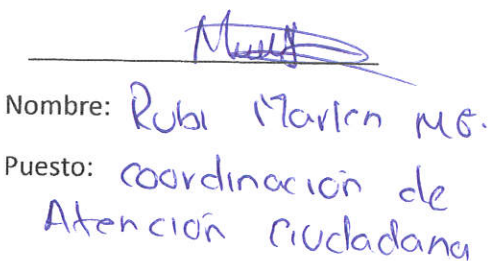 Nombre: Rubi Marlen MG.
Puesto: coordinación de
Atención ciudadana